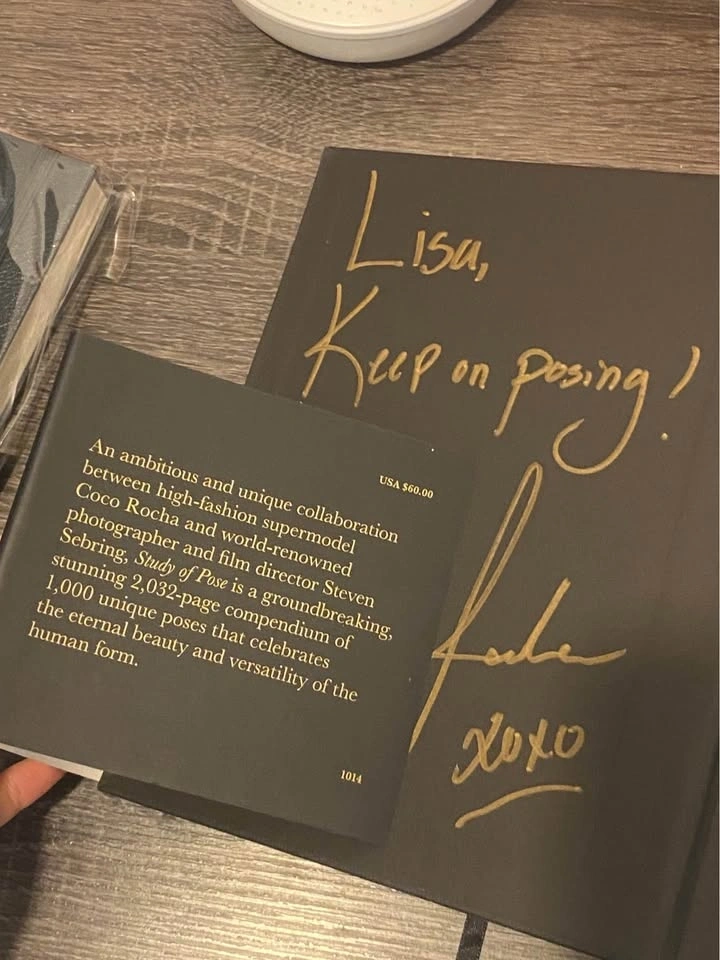 Lisa,
Keep on posing!
Rocha
xoxo
USA $60.00
An ambitious and unique collaboration
between high-fashion supermodel
Coco Rocha and world-renowned
photographer and film director Steven
Sebring, Study of Pose is a groundbreaking,
stunning 2,032-page compendium of
1,000 unique poses that celebrates
the eternal beauty and versatility of the
human form.
1014